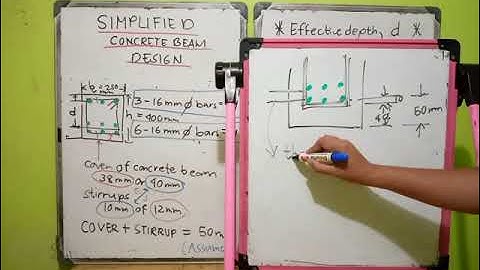 SIMPLIFIED
CONCRETE BEAM
DESIGN
b = 250 mm
3-16mm Ø bars =
d
h
= 400mm
6-16mm Ø bars =
cover of concrete beam
38mm or 40mm
stirrups
10mm of 12mm
COVER + STIRRUP = 50m
(Assume
* Effective depth, d *
50mm